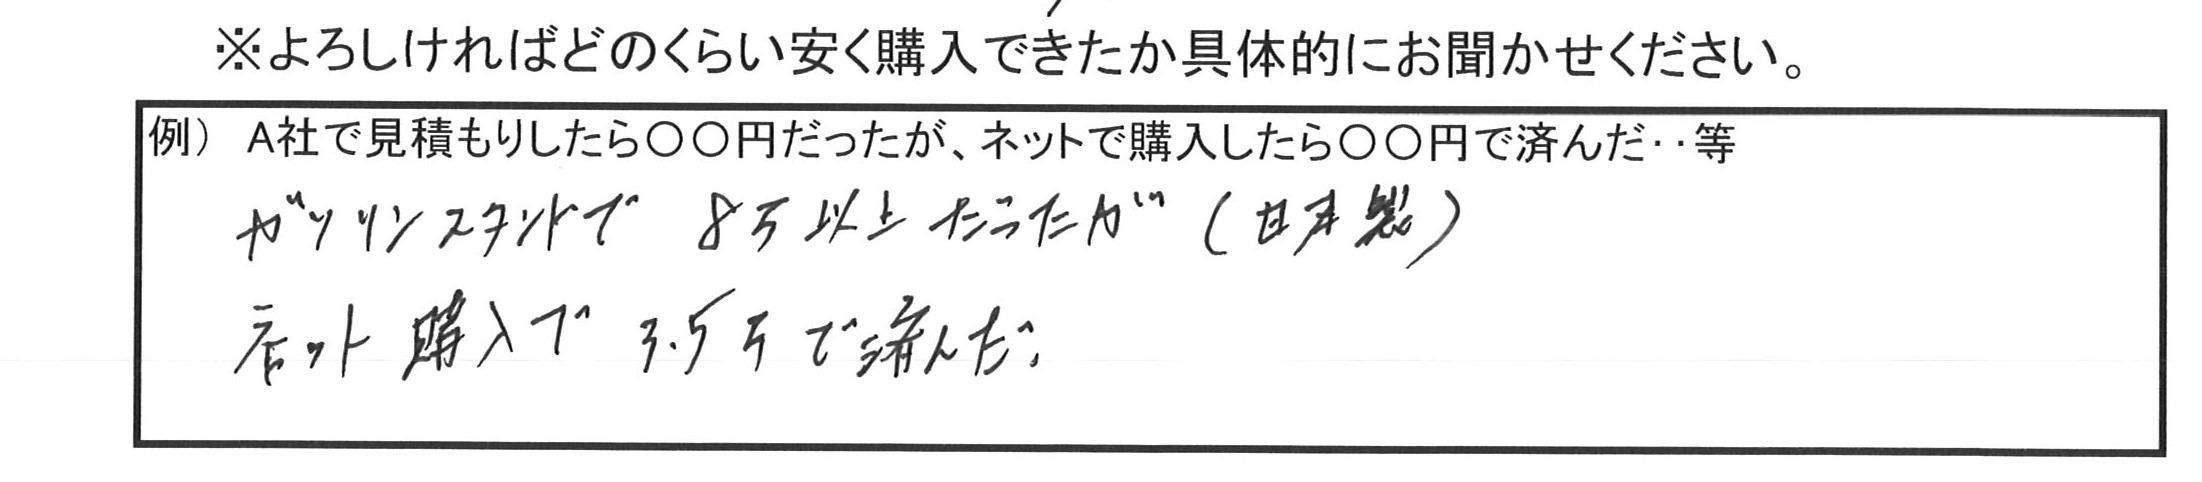 ※よろしければどのくらい安く購入できたか具体的にお聞かせください。
例） A社で見積もりしたら〇〇円だったが、ネットで購入したら〇〇円で済んだ‥等
ガソリンスタンドで 8万以上だったが（日本製）
ネット購入で 3.5万で済んだ。